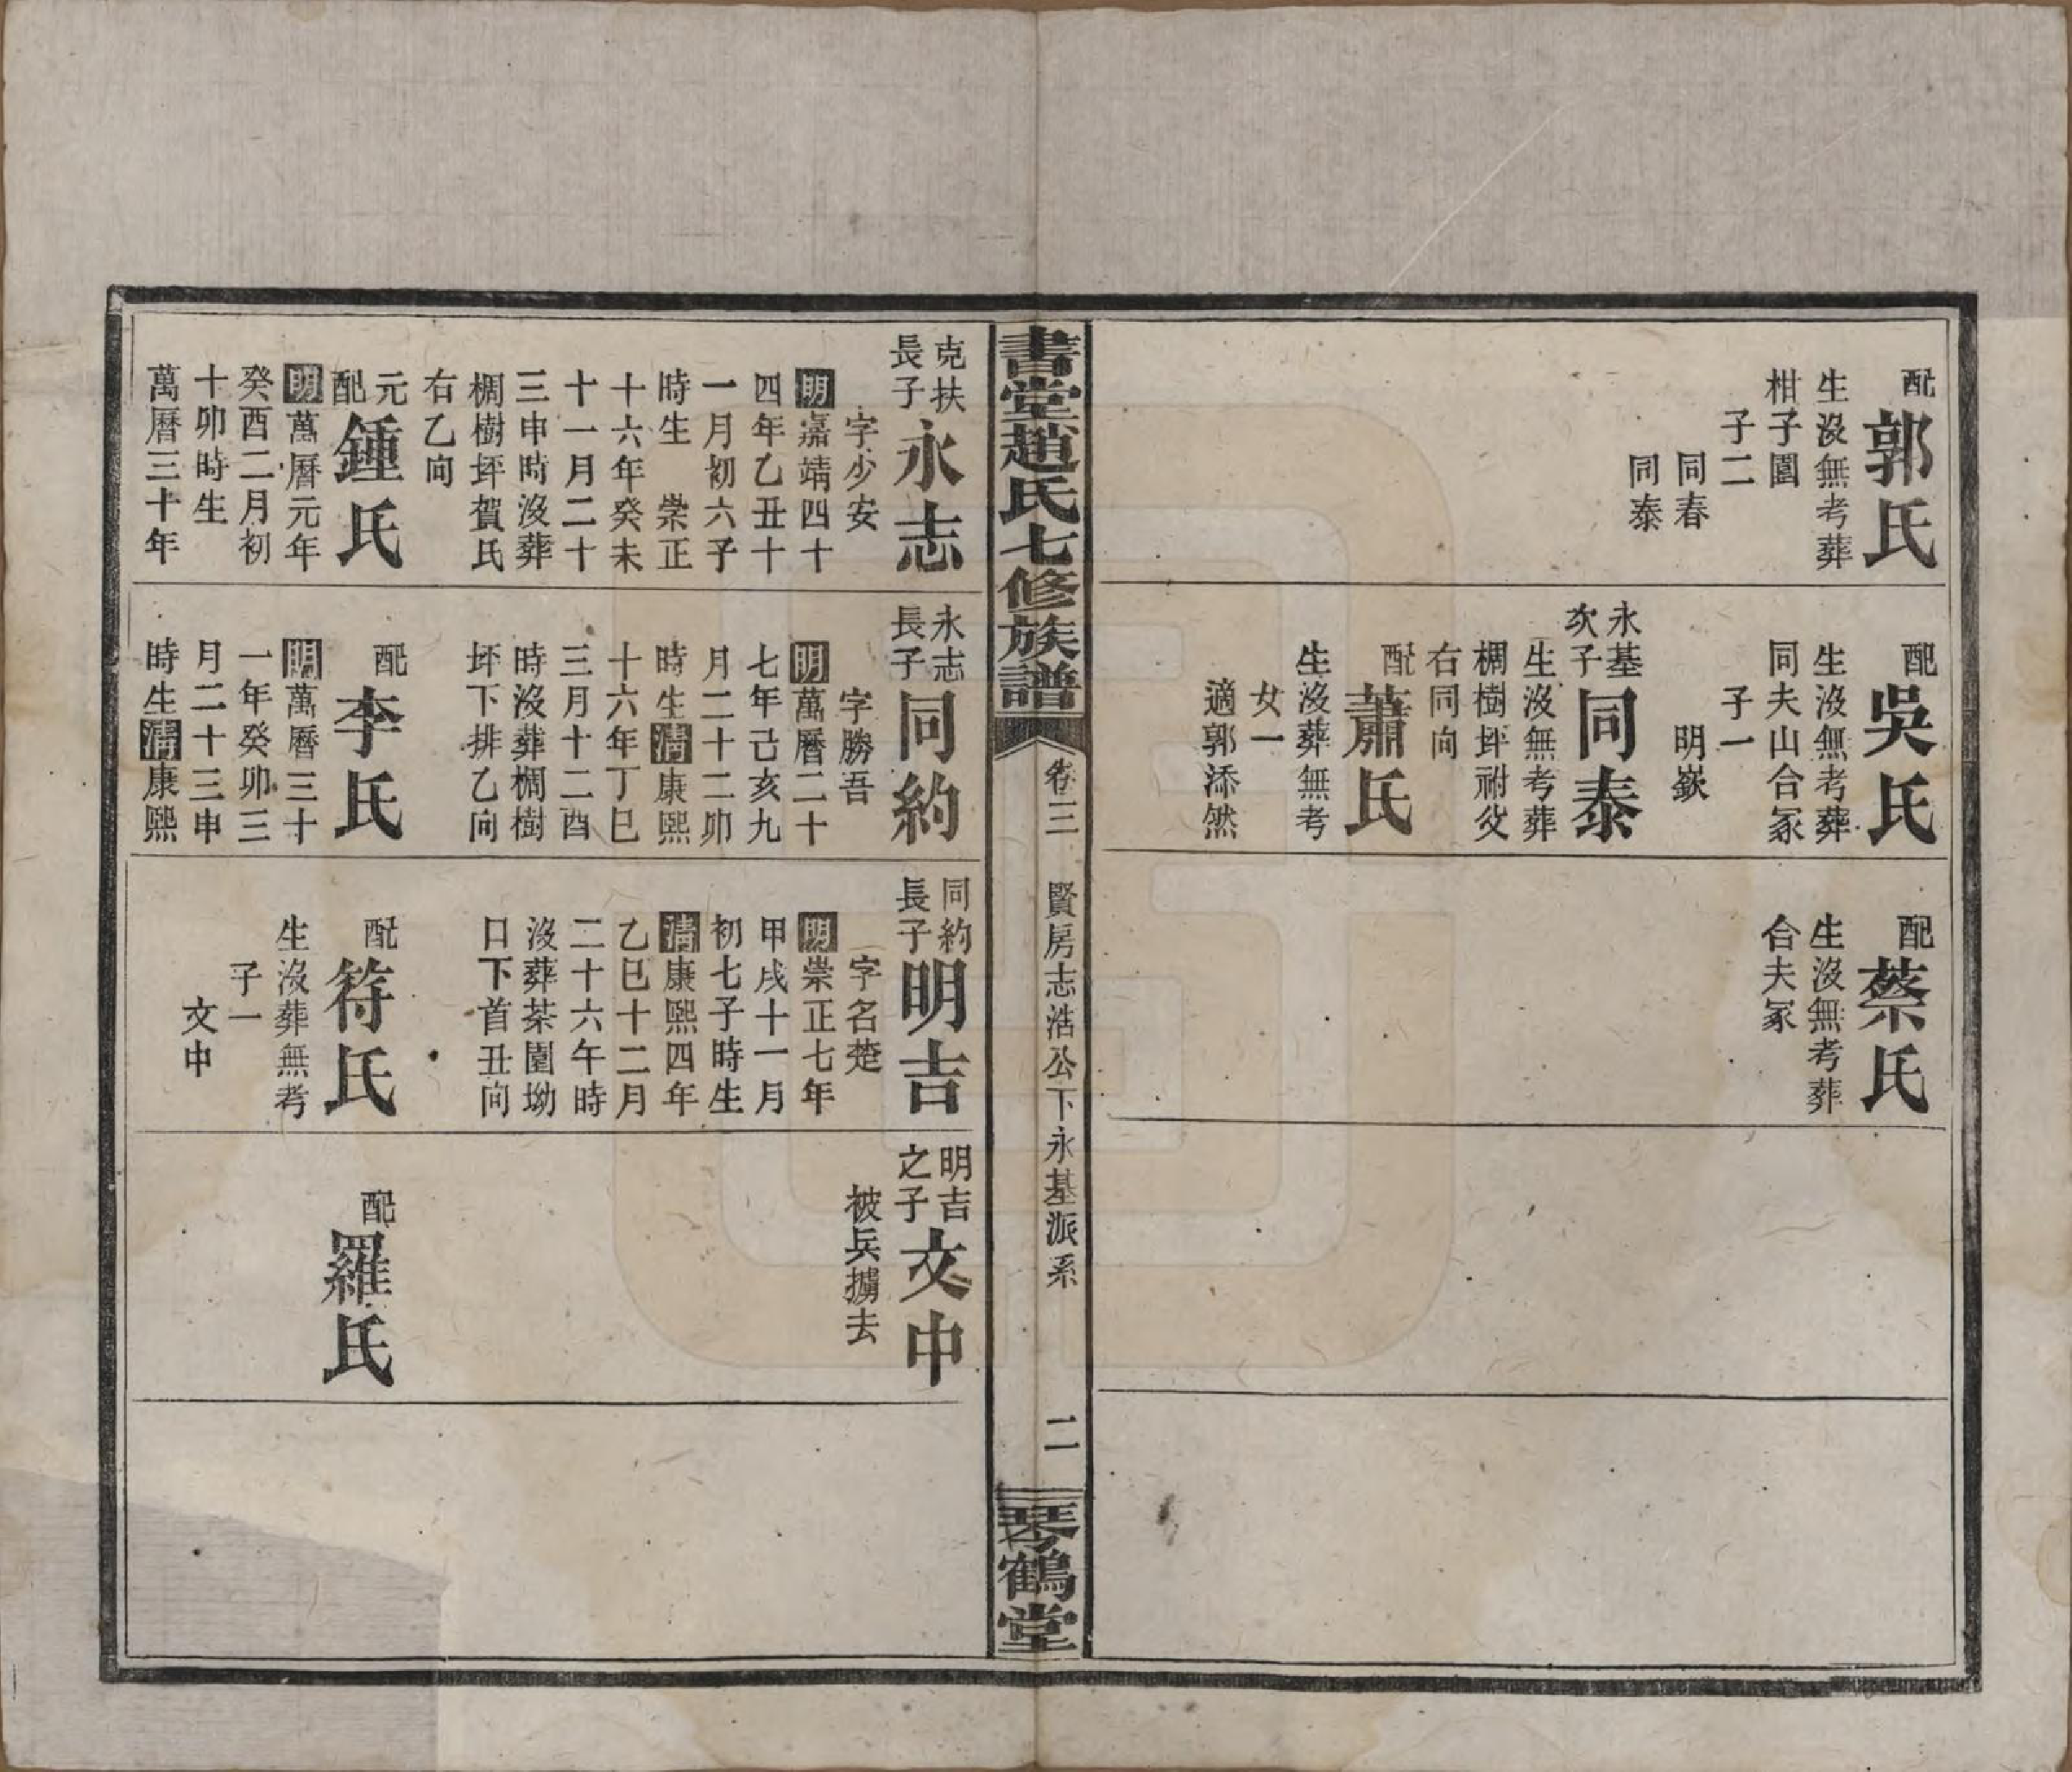 配郭氏
生沒無考葬
柑子園
子二
同春
同泰
配吳氏
生沒無考葬
同夫山合冢
子一
明嶽
永基
次子
同泰
生沒無考葬
椆樹坪祔父
右同向
配蕭氏
生沒葬無考
女一
適郭添然
配蔡氏
生沒無考葬
合夫冢
書堂趙氏七修族譜
卷三
賢房志浩公下永基派系
二
琴鶴堂
克扶
長子
永志
字少安
明嘉靖四十
四年乙丑十
一月初六子
時生 崇正
十六年癸未
十一月二十
三申時沒葬
椆樹坪賀氏
右乙向
元
配
鍾氏
明萬曆元年
癸酉二月初
十卯時生
萬曆三十年
永志
長子
同約
字勝吾
明萬曆二十
七年己亥九
月二十二卯
時生清康熙
十六年丁巳
三月十二酉
時沒葬椆樹
坪下排乙向
配李氏
明萬曆三十
一年癸卯三
月二十三申
時生清康熙
同約
長子
明吉
字名楚
明崇正七年
甲戌十一月
初七子時生
清康熙四年
乙巳十二月
二十六午時
沒葬茶園坳
口下首丑向
配符氏
生沒葬無考
子一
文中
明吉
之子
文中
被兵擄去
配羅氏